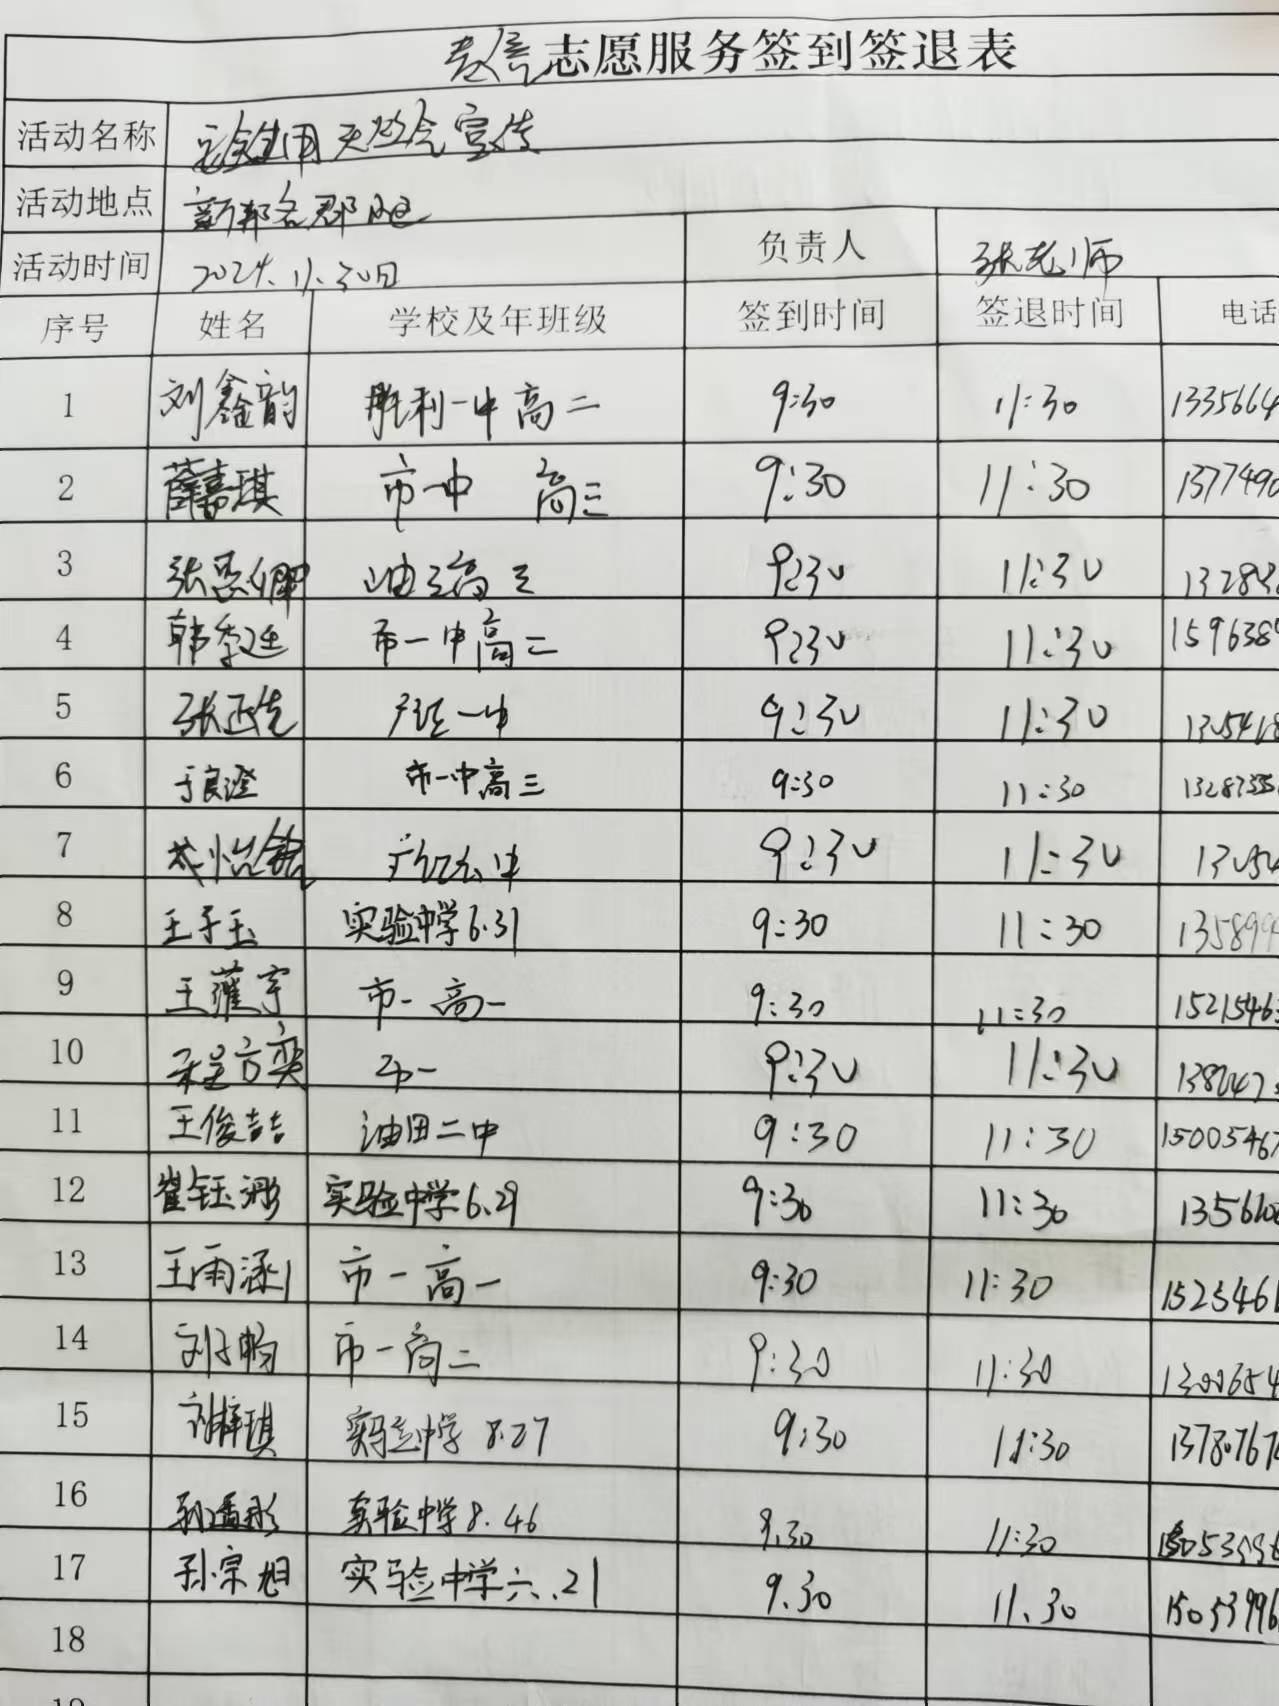 志愿服务签到签退表
活动名称 安全使用天然气宣传
活动地点 新邦名郡
活动时间 2024.11.30日 负责人 张老师
序号 姓名 学校及年班级 签到时间 签退时间 电话
1 刘鑫韵 胜利一中高二 9:30 11:30 1335664
2 薛嘉琪 市一中 高三 9:30 11:30 1377490
3 张恩卿 9:30 11:30 13283
4 韩季廷 市一中高二 9:30 11:30 1596389
5 张正先 一中 9:30 11:30 1305468
6 于良澄 市一中高三 9:30 11:30 13287355
7 9:30 11:30 13054
8 王子玉 实验中学6.31 9:30 11:30 135899
9 王蕴宇 市一高一 9:30 11:30 1521546
10 9:30 11:30 1386473
11 王俊喆 油田二中 9:30 11:30 15005467
12 崔钰涵 实验中学6.29 9:30 11:30 13561
13 王雨涵 市一高一 9:30 11:30 1525461
14 刘子畅 市一高二 9:30 11:30 1300654
15 刘梓琪 实验中学 8.27 9:30 11:30 1378076
16 实验中学8.46 9.30 11:30
17 孙宗旭 实验中学六.21 9.30 11.30 15053996
18